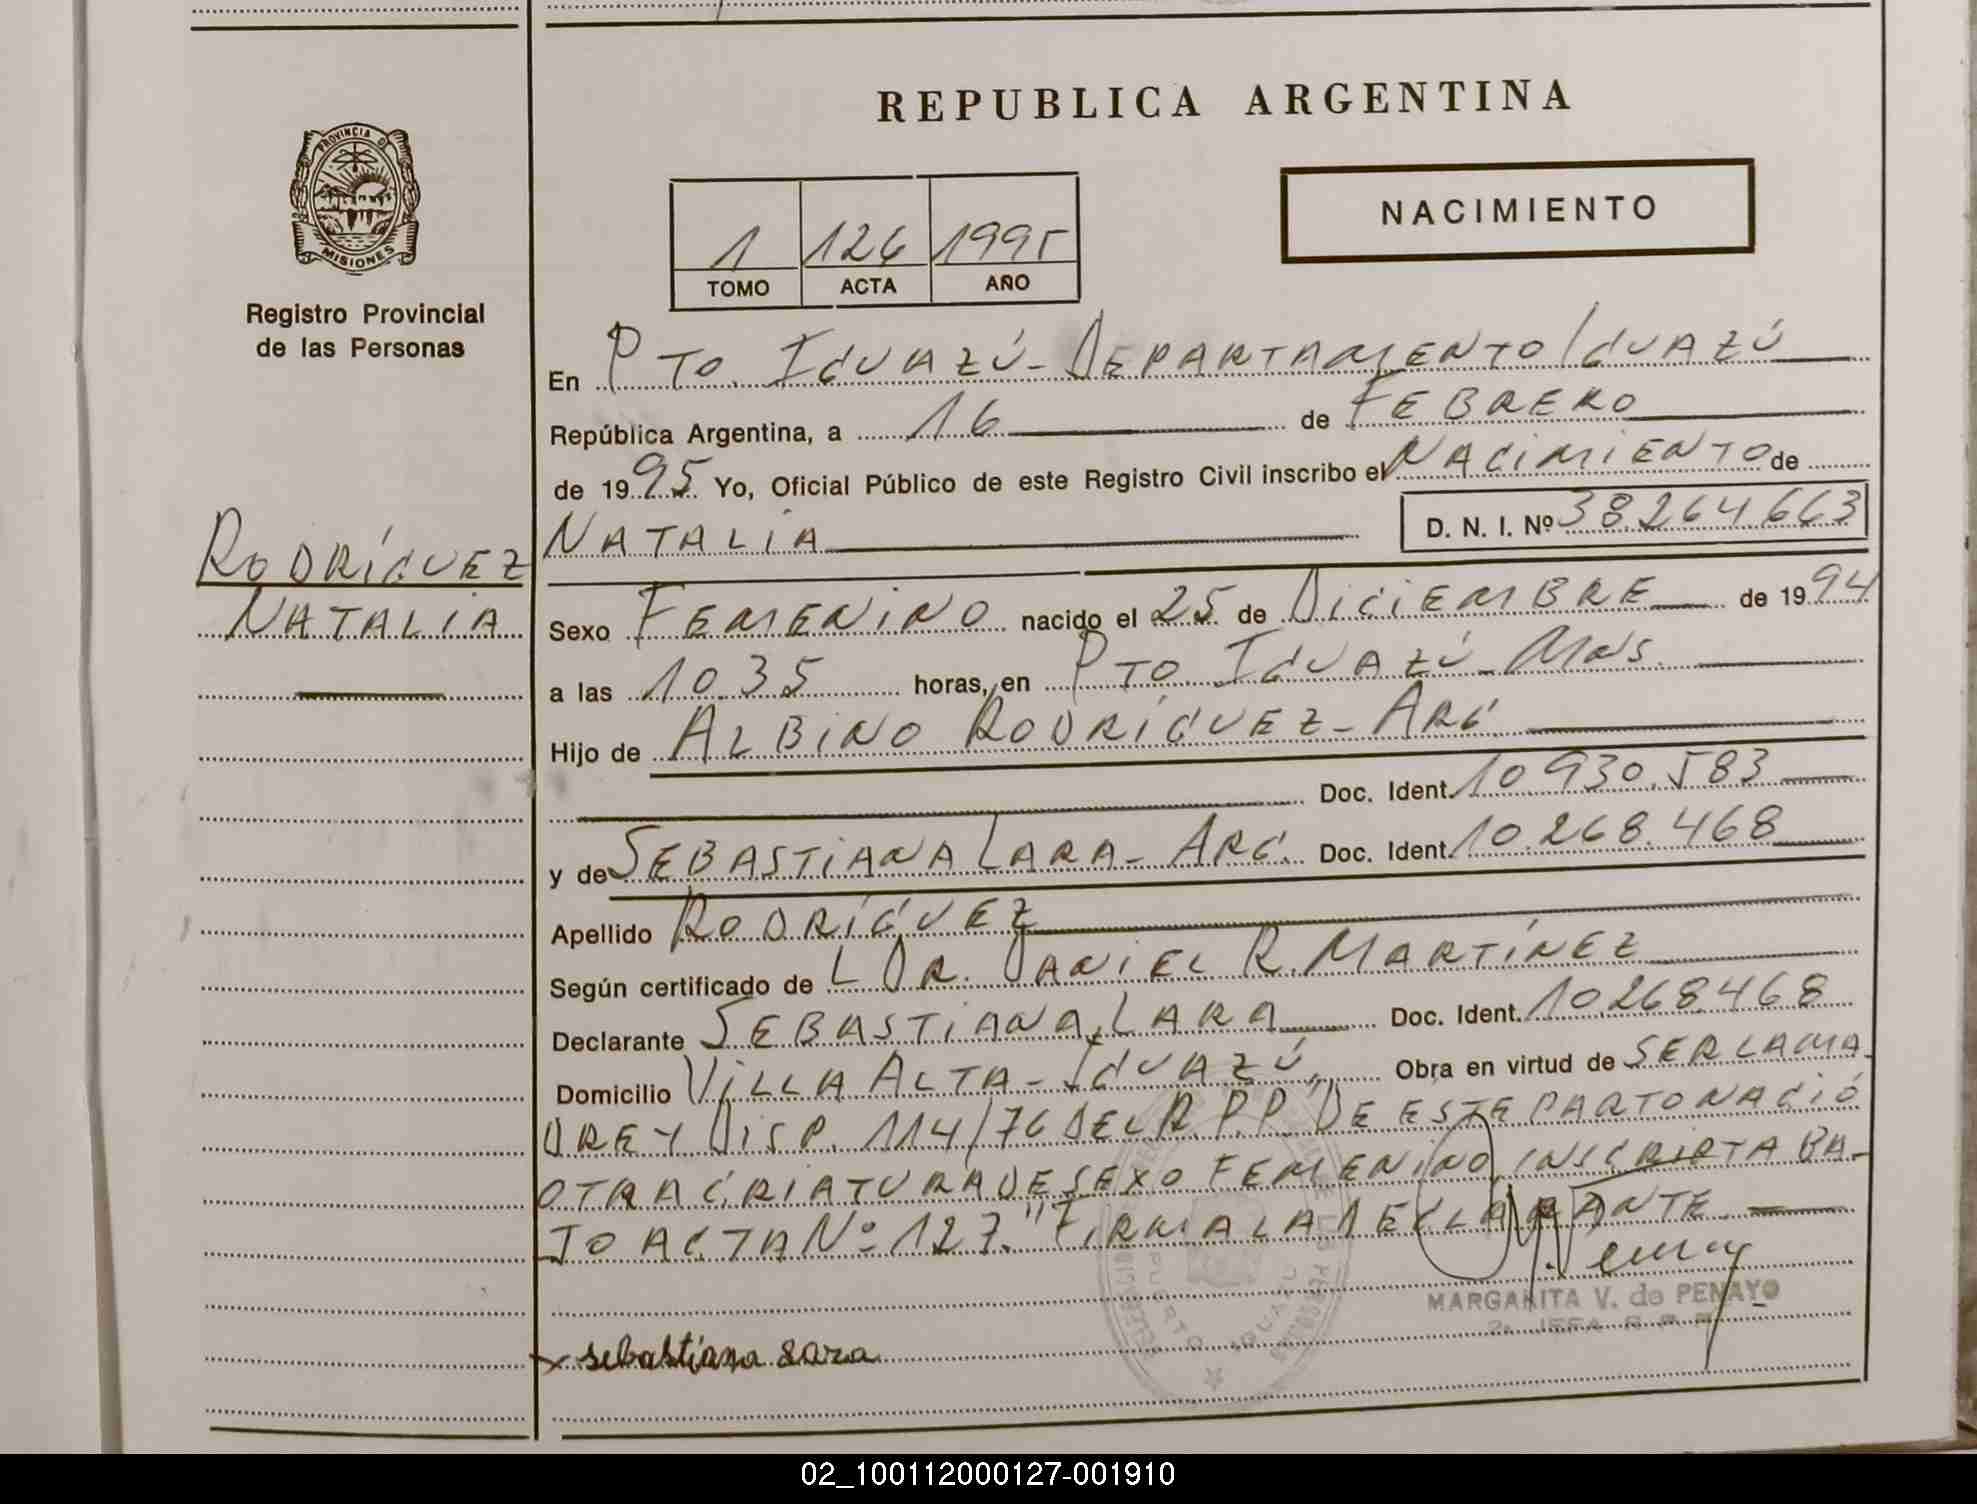 REPUBLICA ARGENTINA
PROVINCIA DE
MISIONES
Registro Provincial
de las Personas
1 126 1995
TOMO ACTA AÑO
NACIMIENTO
En Pto. Iguazú - Departamento Iguazú
República Argentina, a 16 de Febrero
de 1995 Yo, Oficial Público de este Registro Civil inscribo el Nacimiento de
Natalia D. N. I. Nº 38.264.663
Rodríguez
Natalia
Sexo Femenino nacido el 25 de Diciembre de 1994
a las 10.35 horas, en Pto Iguazú - Mns.
Hijo de Albino Rodríguez - Arg.
Doc. Ident. 10.930.583
y de Sebastiana Lara - Arg. Doc. Ident. 10.268.468
Apellido Rodríguez
Según certificado de L Dr. Daniel R. Martínez
Declarante Sebastiana Lara Doc. Ident. 10.268.468
Domicilio Villa Alta - Iguazú Obra en virtud de ser la ma-
dre y Disp. 114/76 del R.P.P. "De este parto nació
otra criatura de sexo femenino inscripta ba-
jo acta Nº 127." Firma la declarante.
MARGARITA V. de PENAYO
2a. JEFA R.P.P.
x sebastiana Lara
PUERTO IGUAZU
02_100112000127-001910